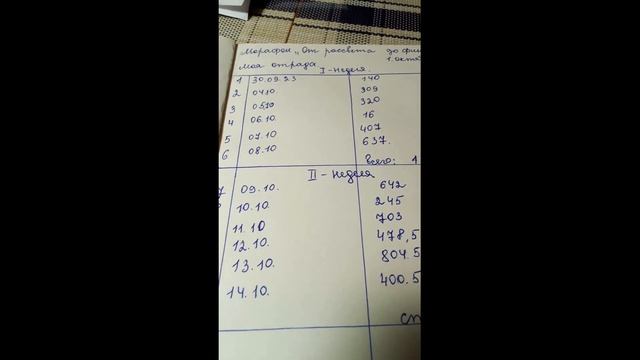 Морафон „От рассвета до фин
Моя отрада. 1. октя
I - неделя.
1 30.09.23 140
2 04.10. 309
3 05.10 320
4 06.10. 16
5 07.10. 407
6 08.10. 637.
Всего: 1
II - неделя
7 09.10. 642
10.10. 245
11.10 703
12.10. 478,5
13.10. 804.5
14.10. 400.5